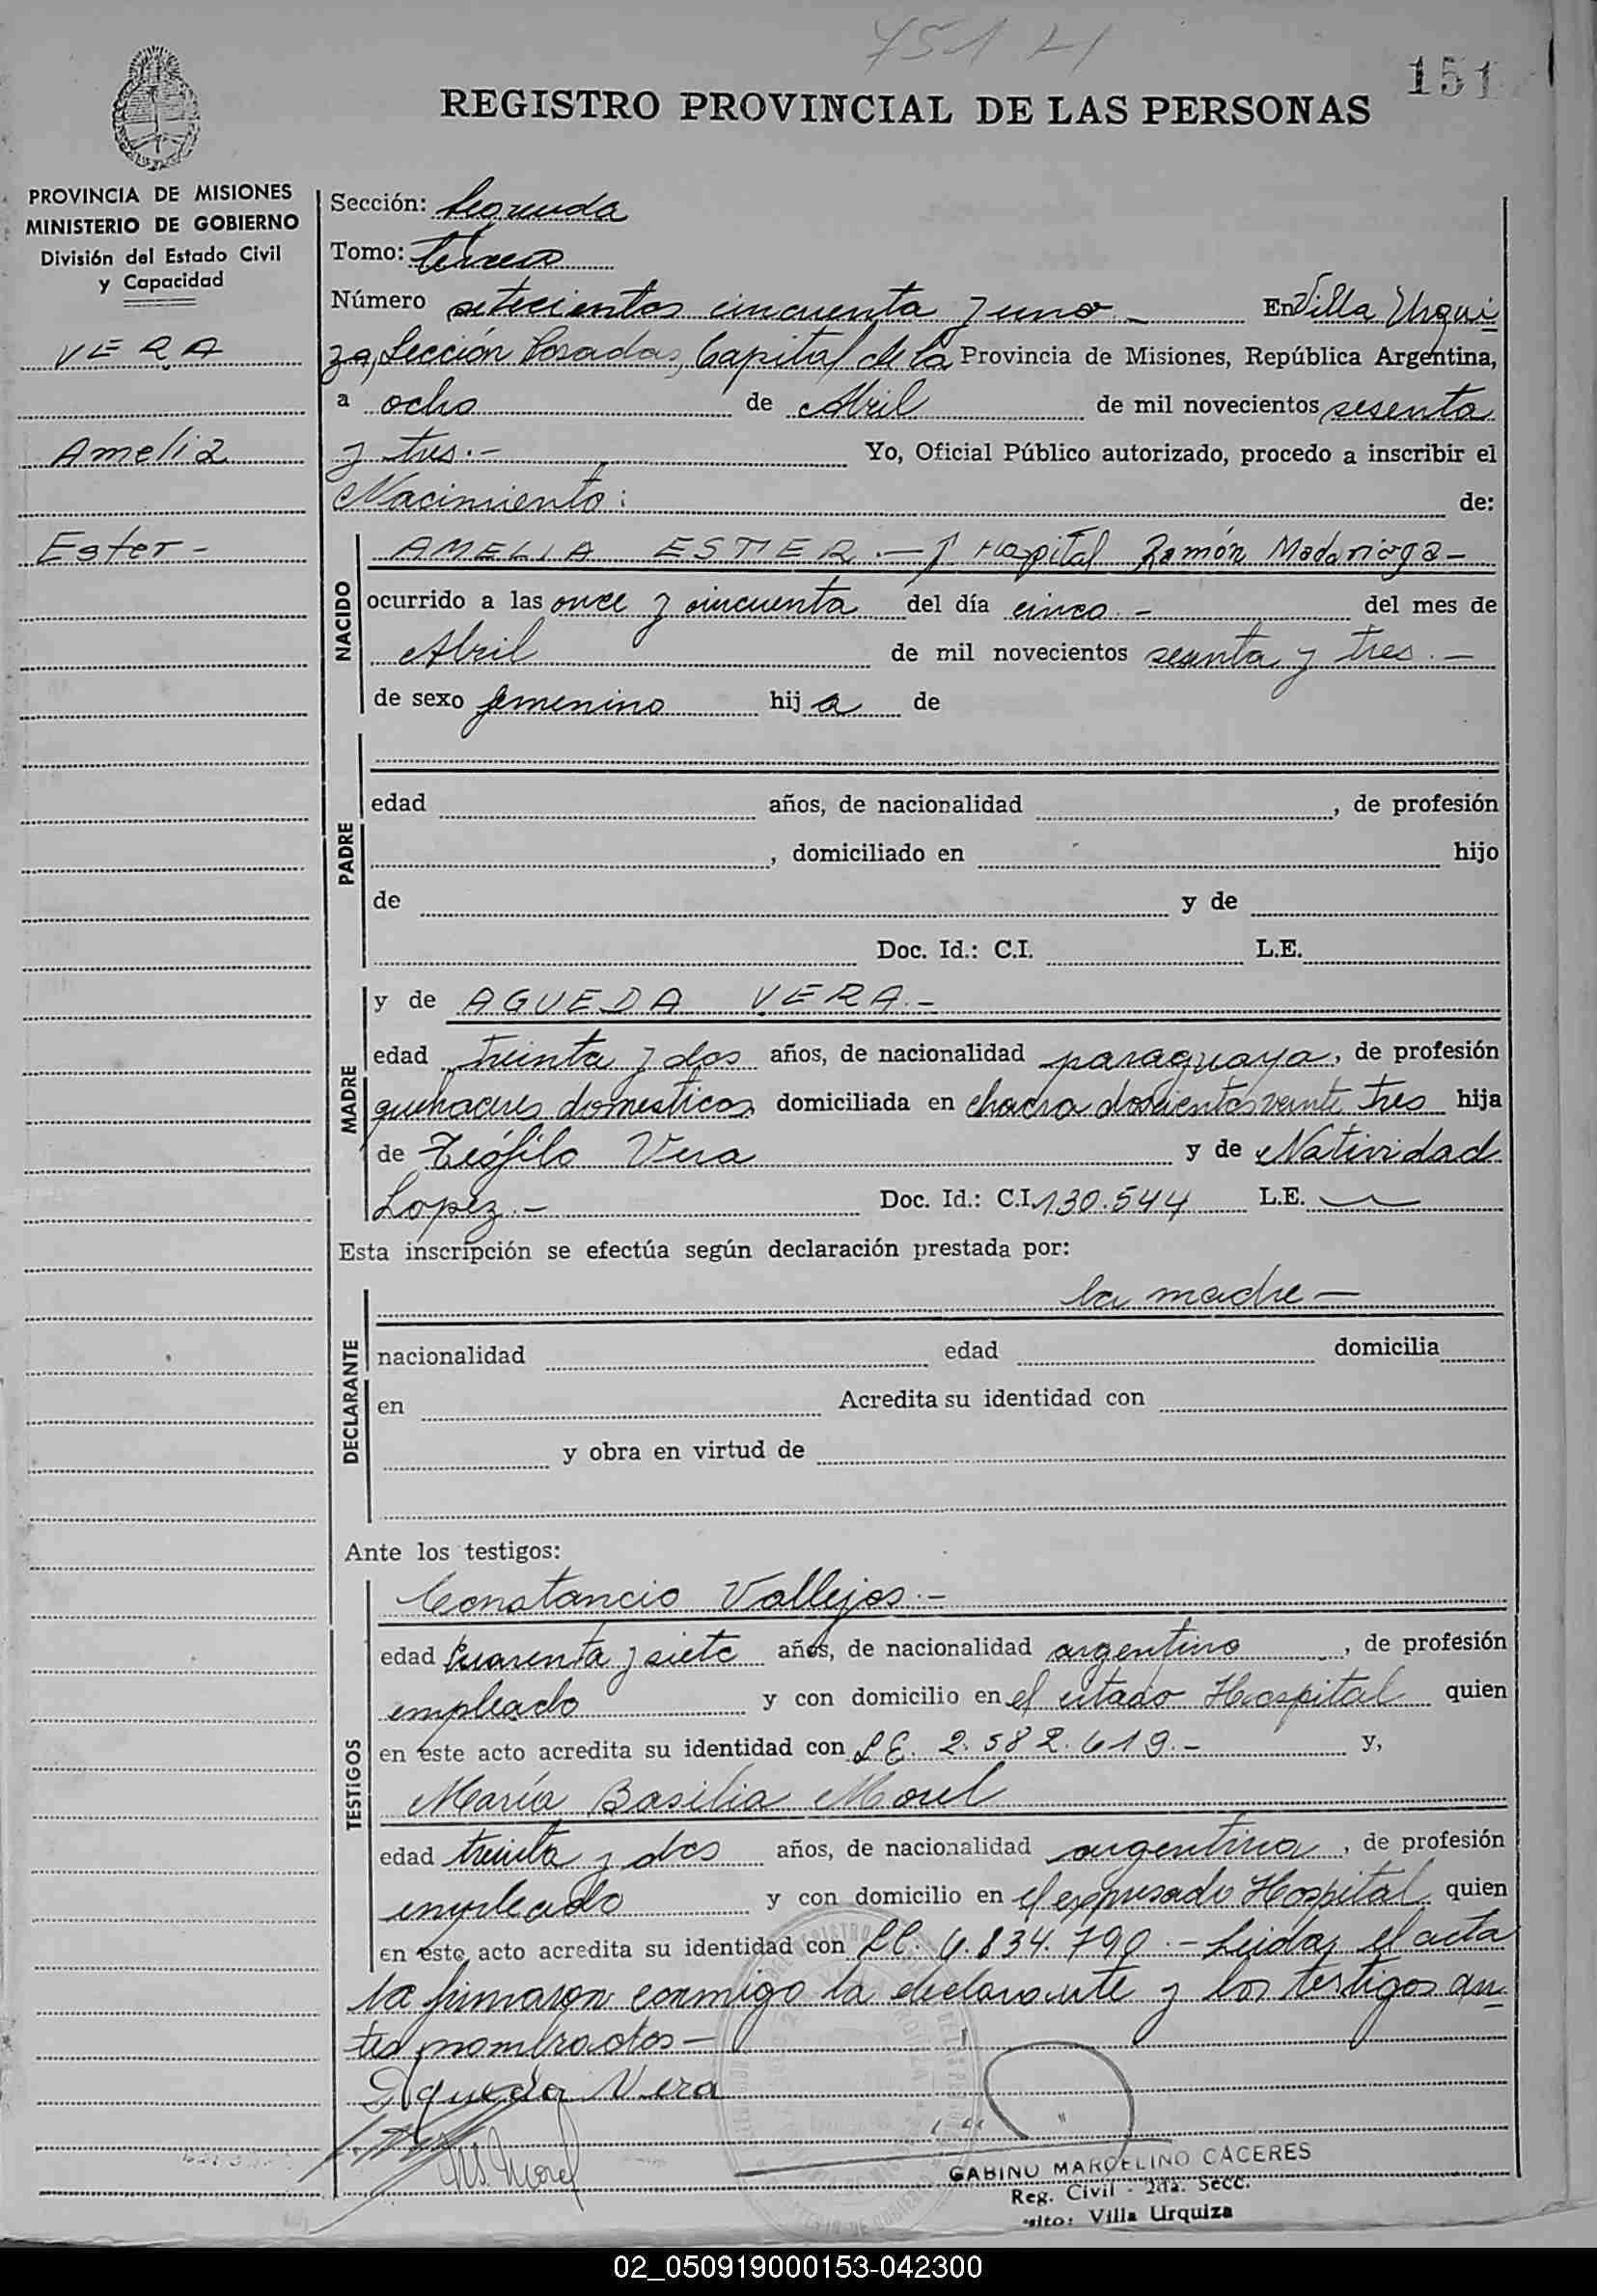 751 H
151
REGISTRO PROVINCIAL DE LAS PERSONAS
PROVINCIA DE MISIONES
MINISTERIO DE GOBIERNO
División del Estado Civil
y Capacidad
VERA
Amelia
Ester -
Sección: Segunda
Tomo: tercero
Número setecientos cincuenta y uno - En Villa Urqui
za, Sección Posadas, Capital de la Provincia de Misiones, República Argentina,
a ocho de Abril de mil novecientos sesenta
y tres.- Yo, Oficial Público autorizado, procedo a inscribir el
Nacimiento: de:
NACIDO
AMELIA ESTHER.- Hospital Ramón Madariaga-
ocurrido a las once y cincuenta del día cinco.- del mes de
Abril de mil novecientos sesenta y tres.-
de sexo femenino hij a de
PADRE
edad años, de nacionalidad , de profesión
, domiciliado en hijo
de y de
Doc. Id.: C.I. L.E.
MADRE
y de AGUEDA VERA.-
edad treinta y dos años, de nacionalidad paraguaya, de profesión
quehaceres domesticos domiciliada en chacra doscientos veinte tres hija
de Teófilo Vera y de Natividad
Lopez.- Doc. Id.: C.I. 130.544 L.E.
Esta inscripción se efectúa según declaración prestada por:
DECLARANTE
la madre-
nacionalidad edad domicilia
en Acredita su identidad con
y obra en virtud de
Ante los testigos:
TESTIGOS
Constancio Vallejos.-
edad Cuarenta y siete años, de nacionalidad argentino , de profesión
empleado y con domicilio en el citado Hospital quien
en este acto acredita su identidad con L.E. 2.582.619.- y,
María Basilia Morel
edad treinta y dos años, de nacionalidad argentina , de profesión
empleado y con domicilio en el expresado Hospital quien
en este acto acredita su identidad con L.C. 6.834.790.- Leida el acta
la firmaron conmigo la declarante y los testigos an
tes nombrados-
Agueda Vera
M.B. Morel
GABINO MARCELINO CACERES
Reg. Civil - 2da. Secc.
Villa Urquiza
02_050919000153-042300